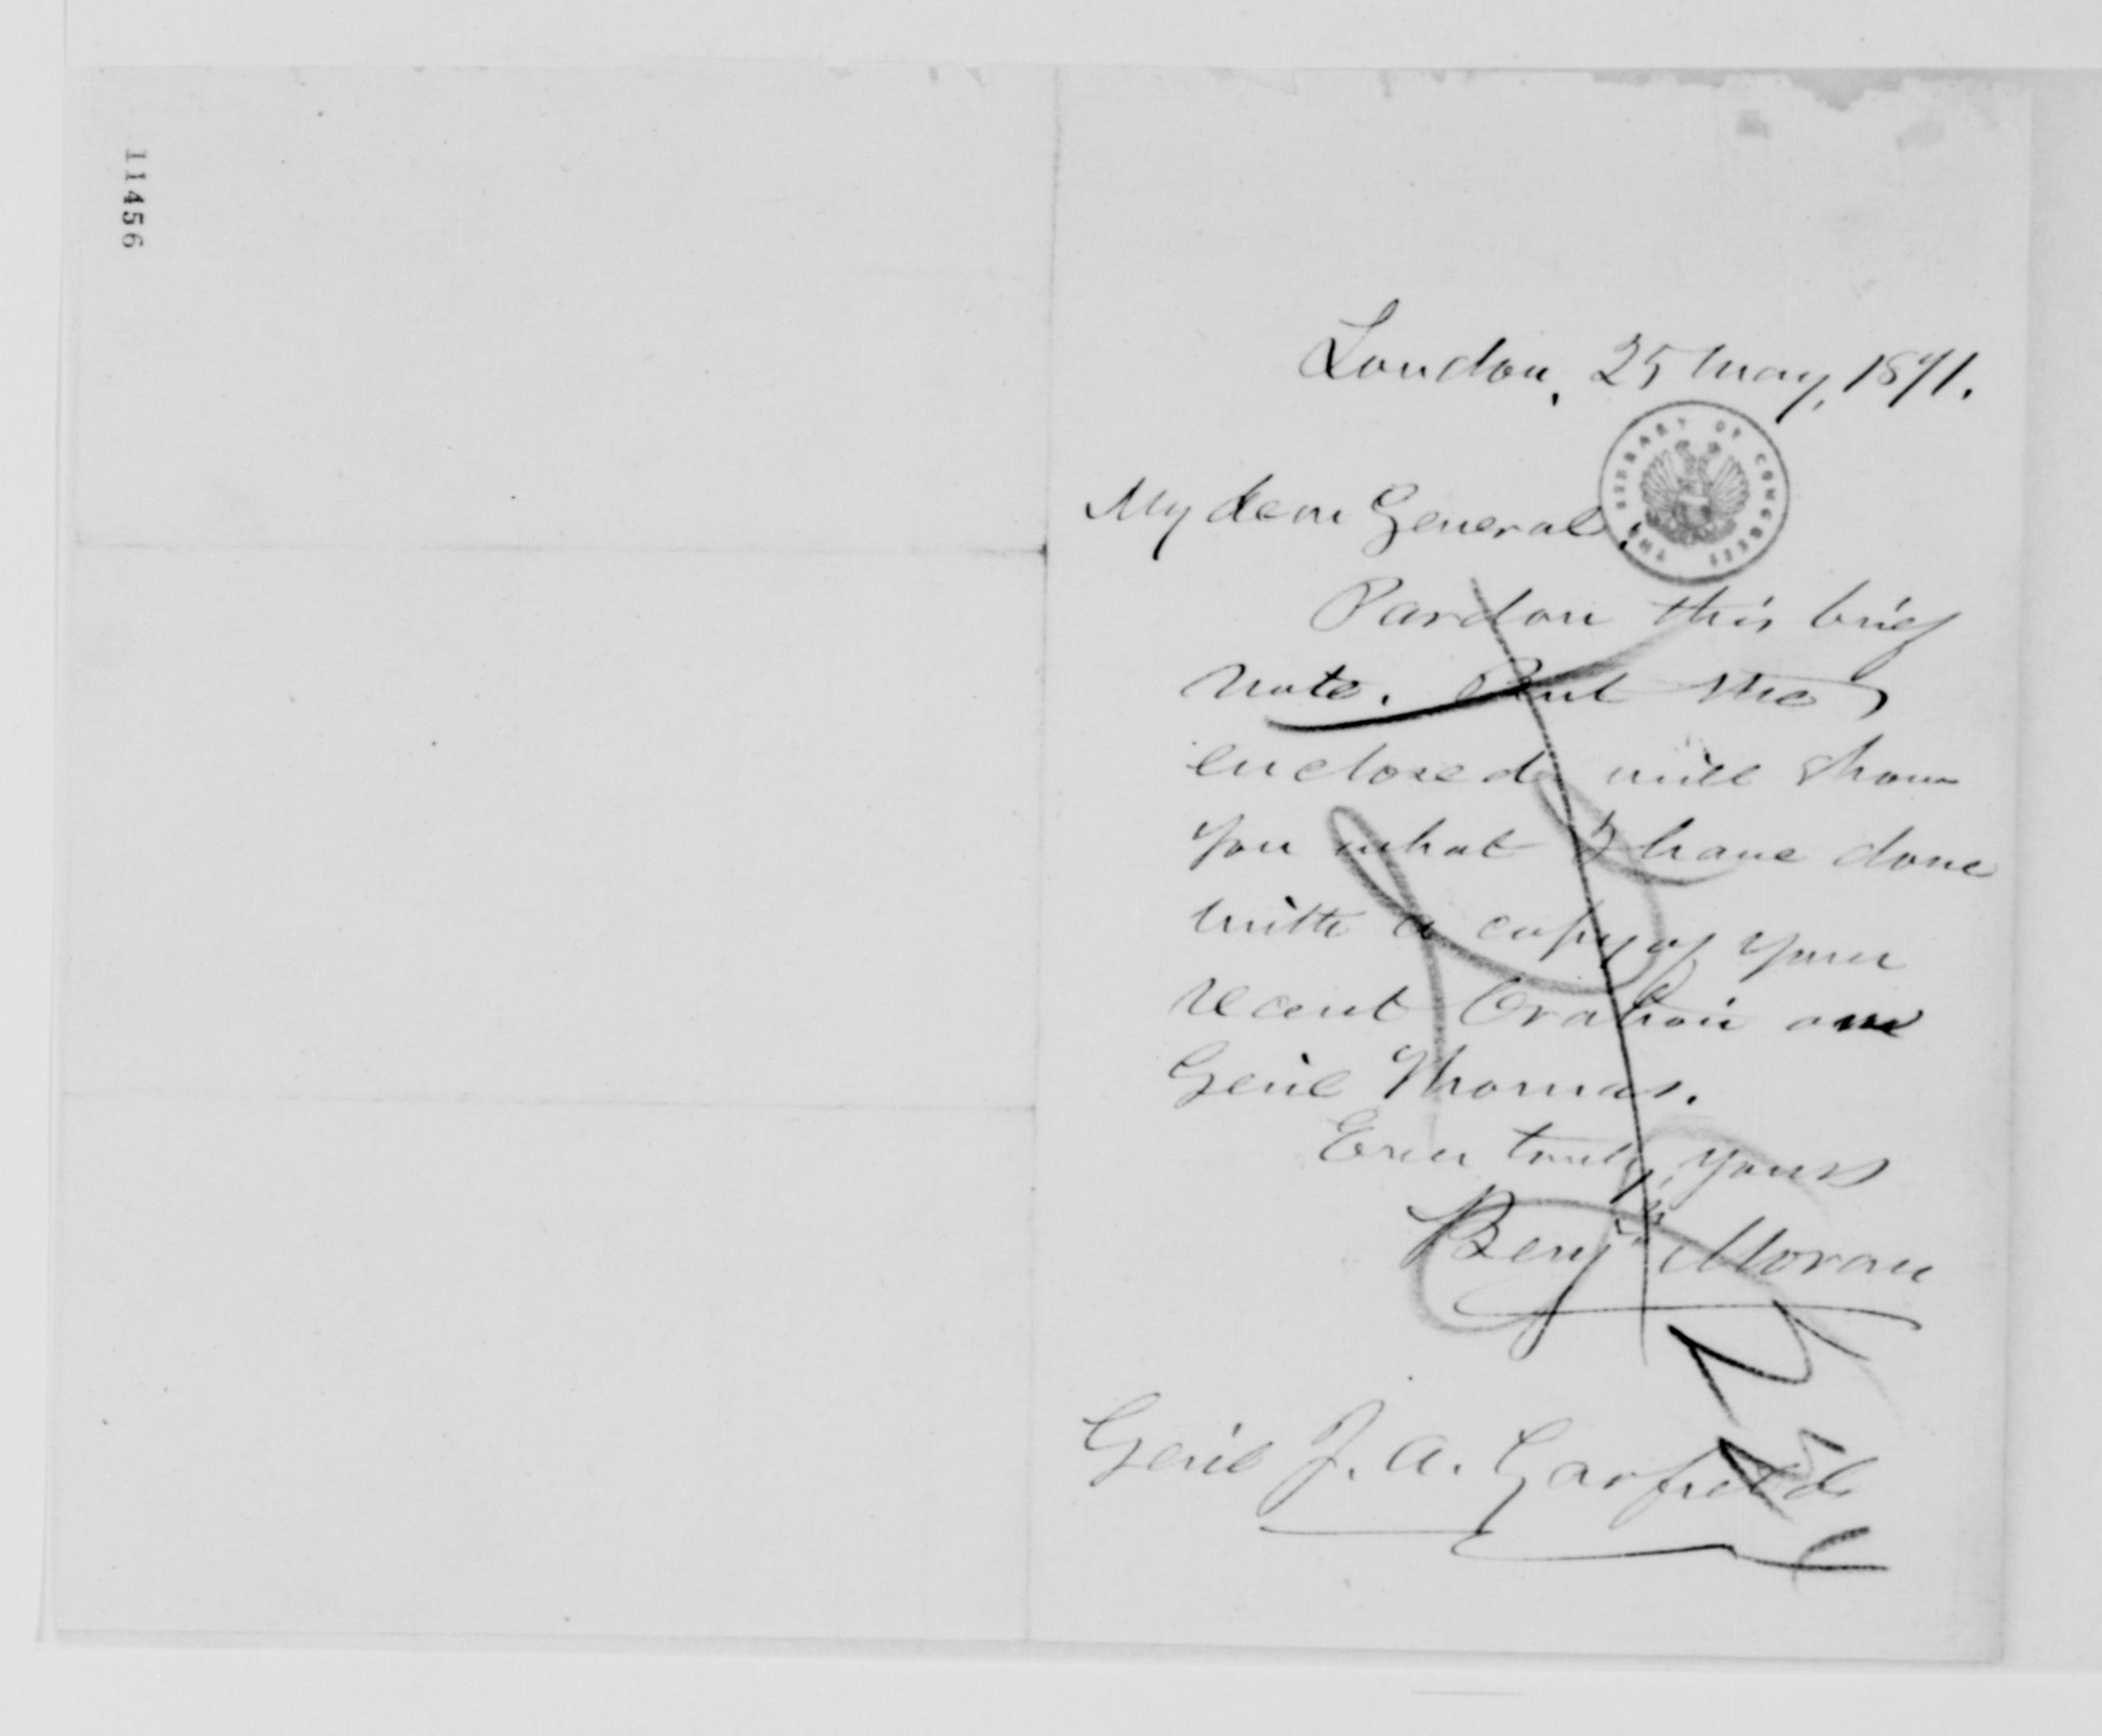 11456
London, 25 May, 1871.
THE LIBRARY OF CONGRESS
My dear General:
Pardon this brief
note. But the
enclosed will show
you what I have done
with a copy of your
recent Oration on
Genl Thomas.
Ever truly yours
Benjn Moran
Genl J. A. Garfield